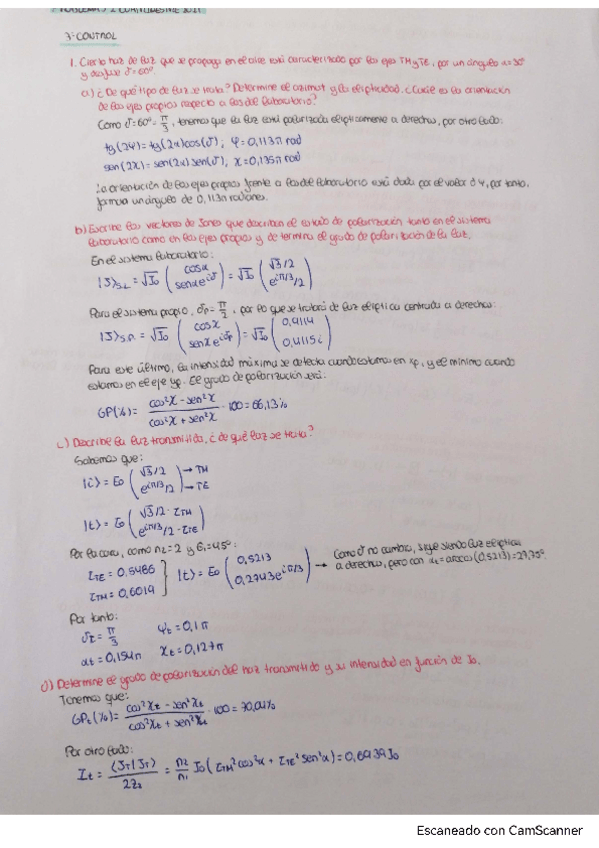 PROBLEMAS 2 CUATRIMESTRE 2021
3-CONTROL
1. Cierto haz de luz que se propaga en el aire está caracterizado por los ejes TM y TE, por un ángulo α=30°
y desfase δ=60°.
a) ¿De qué tipo de luz se trata? Determine el azimut y la elipticidad. ¿Cuál es la orientación
de los ejes propios respecto a los del laboratorio?
Como δ=60°=π/3, tenemos que la luz está polarizada elípticamente a derechas, por otro lado:
tg(2ψ)=tg(2α)cos(δ), ψ=0,113π rad
sen(2χ)=sen(2α)sen(δ), χ=0,135π rad
La orientación de los ejes propios frente a los del laboratorio está dada por el valor d ψ, por tanto,
forma un ángulo de 0,113π radianes.
b) Escribe los vectores de Jones que describan el estado de polarización tanto en el sistema
laboratorio como en los ejes propios y determina el grado de polarización de la luz.
En el sistema laboratorio:
|J>S.L = √I₀ (cosα senαe^iδ) = √I₀ (√3/2 e^iπ/3/2)
Para el sistema propio, δp=π/2, por lo que se tratará de luz elíptica centrada a derechas:
|J>S.P = √I₀ (cosχ senχe^iδp) = √I₀ (0,9114 0,4115i)
Para este último, la intensidad máxima se detecta cuando estamos en xp, y el mínimo cuando
estamos en el eje yp. El grado de polarización será:
GP(%)= cos²χ-sen²χ / cos²χ+sen²χ ·100=66,13%
c) Describe la luz transmitida, ¿de qué luz se trata?
Sabemos que:
|i>=E₀ (√3/2 e^iπ/3/2) →TM →TE
|t>=E₀ (√3/2·τTM e^iπ/3/2·τTE)
Por la cara, como n₂=2 y θ₁=45°:
τTE=0,5486
τTM=0,6019
|t>=E₀ (0,5213 0,2743e^iπ/3)
→ Como δ no cambia, sigue siendo luz elíptica
a derechas, pero con αt=arccos(0,5213)=27,75°
Por tanto:
δt=π/3 ψt=0,1π
αt=0,154π χt=0,127π
d) Determine el grado de polarización del haz transmitido y su intensidad en función de I₀.
Tenemos que:
GPt(%)= cos²χt-sen²χt / cos²χt+sen²χt ·100=70,01%
Por otro lado:
It= <JT|JT> / 2Z₂ = n₂/n₁ I₀(τTM²cos²α + τTE²sen²α)=0,6939I₀
Escaneado con CamScanner